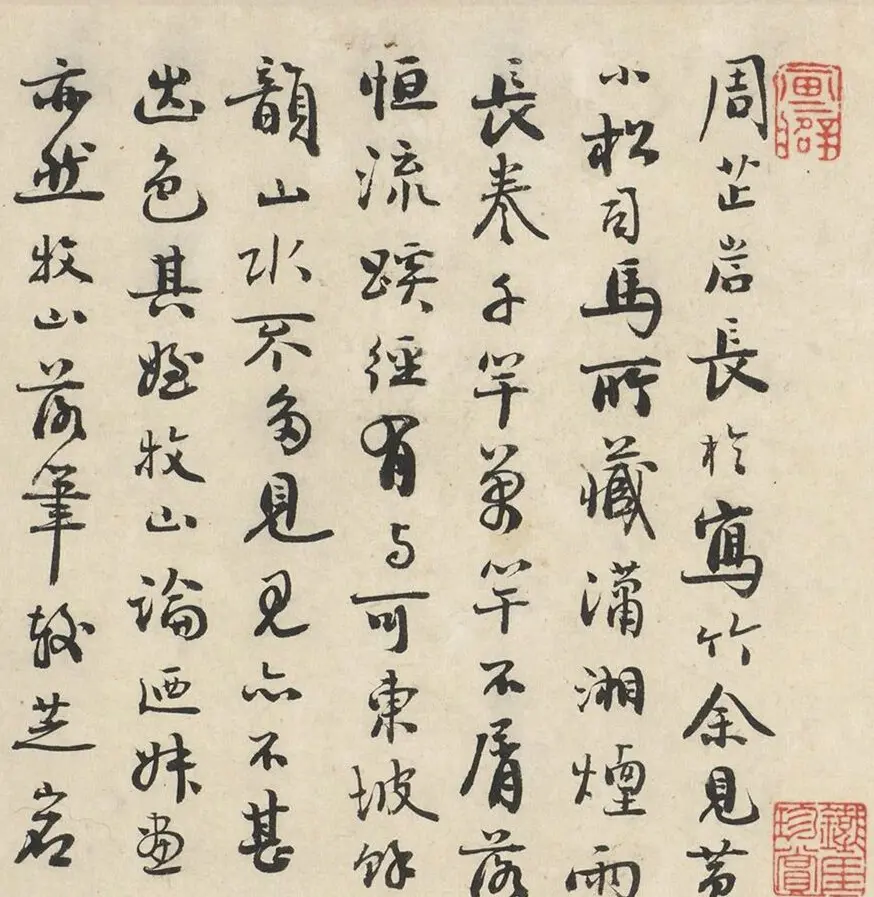 周芷岩長於寫竹余見黃
小松司馬所藏瀟湘煙雨
長卷千竿萬竿不屑落
恒流蹊徑有与可東坡餘
韻山水不多見見亦不甚
出色其姪牧山論迺叔畫
亦然牧山落筆較芝岩